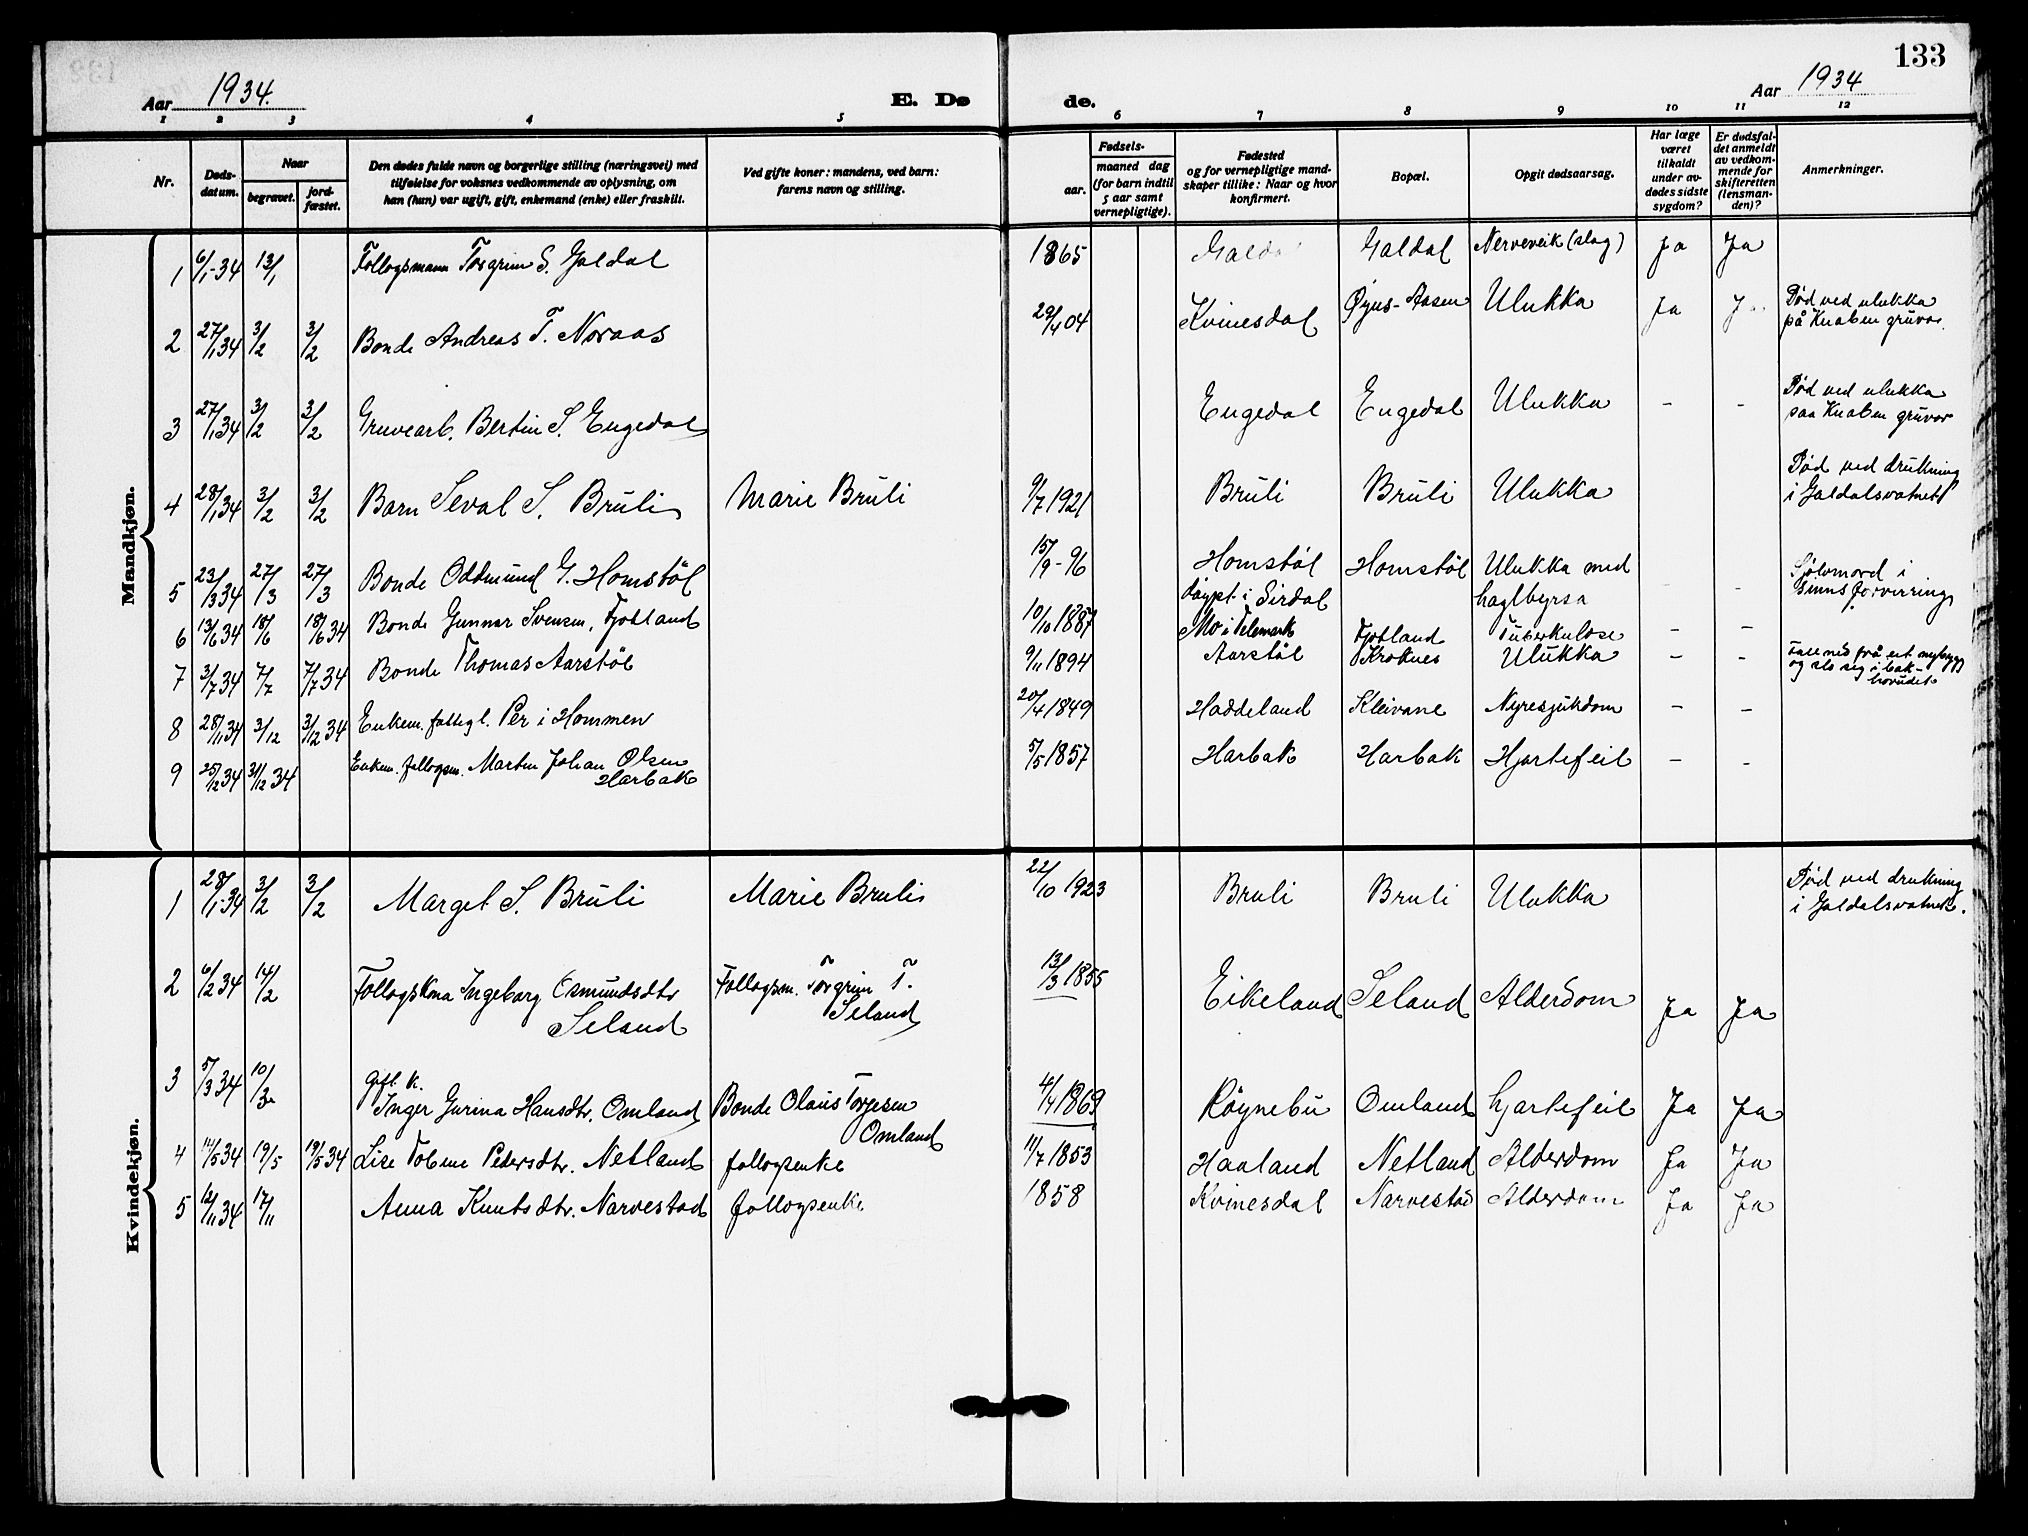 133
Aar 1934.
E. Dø
de.
Aar 1934
1 2 3 4 5 6 7 8 9 10 11 12
Nr.
Døds-
datum.
Naar
begravet.
jord-
fæstet.
Den dødes fulde navn og borgerlige stilling (næringsvei) med
tilføielse for voksnes vedkommende av oplysning, om
han (hun) var ugift, gift, enkemand (enke) eller fraskilt.
Ved gifte koner: mandens, ved barn:
farens navn og stilling.
Fødsels-
aar.
maaned dag
(for barn indtil
5 aar samt
vernepligtige).
Fødested
og for vernepligtige mand-
skaper tillike: Naar og hvor
konfirmert.
Bopæl.
Opgit dødsaarsag.
Har læge
været
tilkaldt
under av-
dødes sidste
sygdom?
Er dødsfal-
det anmeldt
av vedkom-
mende for
skifteretten
(lensman-
den)?
Anmerkninger.
Mandkjøn.
1 6/1-34 13/1 Follogsmann Torgrim S. Galdal 1865 Galdal Nerveveik (slag) Ja Ja
2 27/1 34 3/2 3/2 Bonde Andreas T. Noraas 29/4 04 Kvinesdal Øyus-Aasen Ulukka Ja
Død ved ulukka
på Knaben gruvor.
3 27/1 34 3/2 3/2 Gruvearb. Bertin S. Engedal Engedal Engedal Ulukka - -
Død ved ulukka
paa Knaben gruvor
4 28/1 34 3/2 3/2 Barn Seval S. Bruli Marie Bruli 9/7 1921 Bruli Bruli Ulukka
Død ved drukning
i Galdalsvatnet
5 23/3 34 27/3 27/3 Bonde Oddmund G. Homstøl 15/9-96 Homstøl Homstøl Ulukka med
døypt i Sirdal haglbyrsa
Sjølvmord i
Sinnsforvirring
6 13/6 34 18/6 18/6 34 Bonde Gunnar Svensen, Fjotland 10/10 1887 Mo i Telemark Fjotland Tuberkulose - -
7 3/7 34 7/7 7/7 34 Bonde Thomas Aarstøl 9/11 1894 Aarstøl Kroknes Ulukka - -
Fall ned frå eit nybygg
og slo seg i bak-
hovudet
8 28/11 34 3/12 3/12 34 Enkem. follogl. Per i Hommen 20/4 1849 Haddeland Kleivane Nyresjukdom - -
9 25/12 34 31/12 34 Enkem. follogsm. Martin Johan Olsen
Harbak 5/5 1857 Harbak Harbak Hjartefeil - -
Kvindekjøn.
1 28/1-34 3/2 3/2 Marget S. Bruli Marie Bruli 22/10 1923 Bruli Bruli Ulukka
Død ved drukning
i Galdalsvatnet.
2 6/2 34 14/2 Follogskona Ingeborg Osmundsdtr Follogsm. Torgrim T. 13/3 1855 Eikeland Seland Alderdom Ja Ja
Seland Seland
3 5/3 34 10/3 Gift k.
Inger Gurina Hansdtr. Omland Bonde Olaus Torjesen 4/4 1869 Røynebu Omland Hjartefeil Ja Ja
Omland
4 12/5 34 19/5 19/5 34 Lise Tobine Pedersdtr. Netland follogsenke 11/7 1853 Haaland Netland Alderdom Ja Ja
5 12/11 34 17/11 Anna Knutsdtr. Narvestad follogsenke 1858 Kvinesdal Narvestad Alderdom Ja Ja